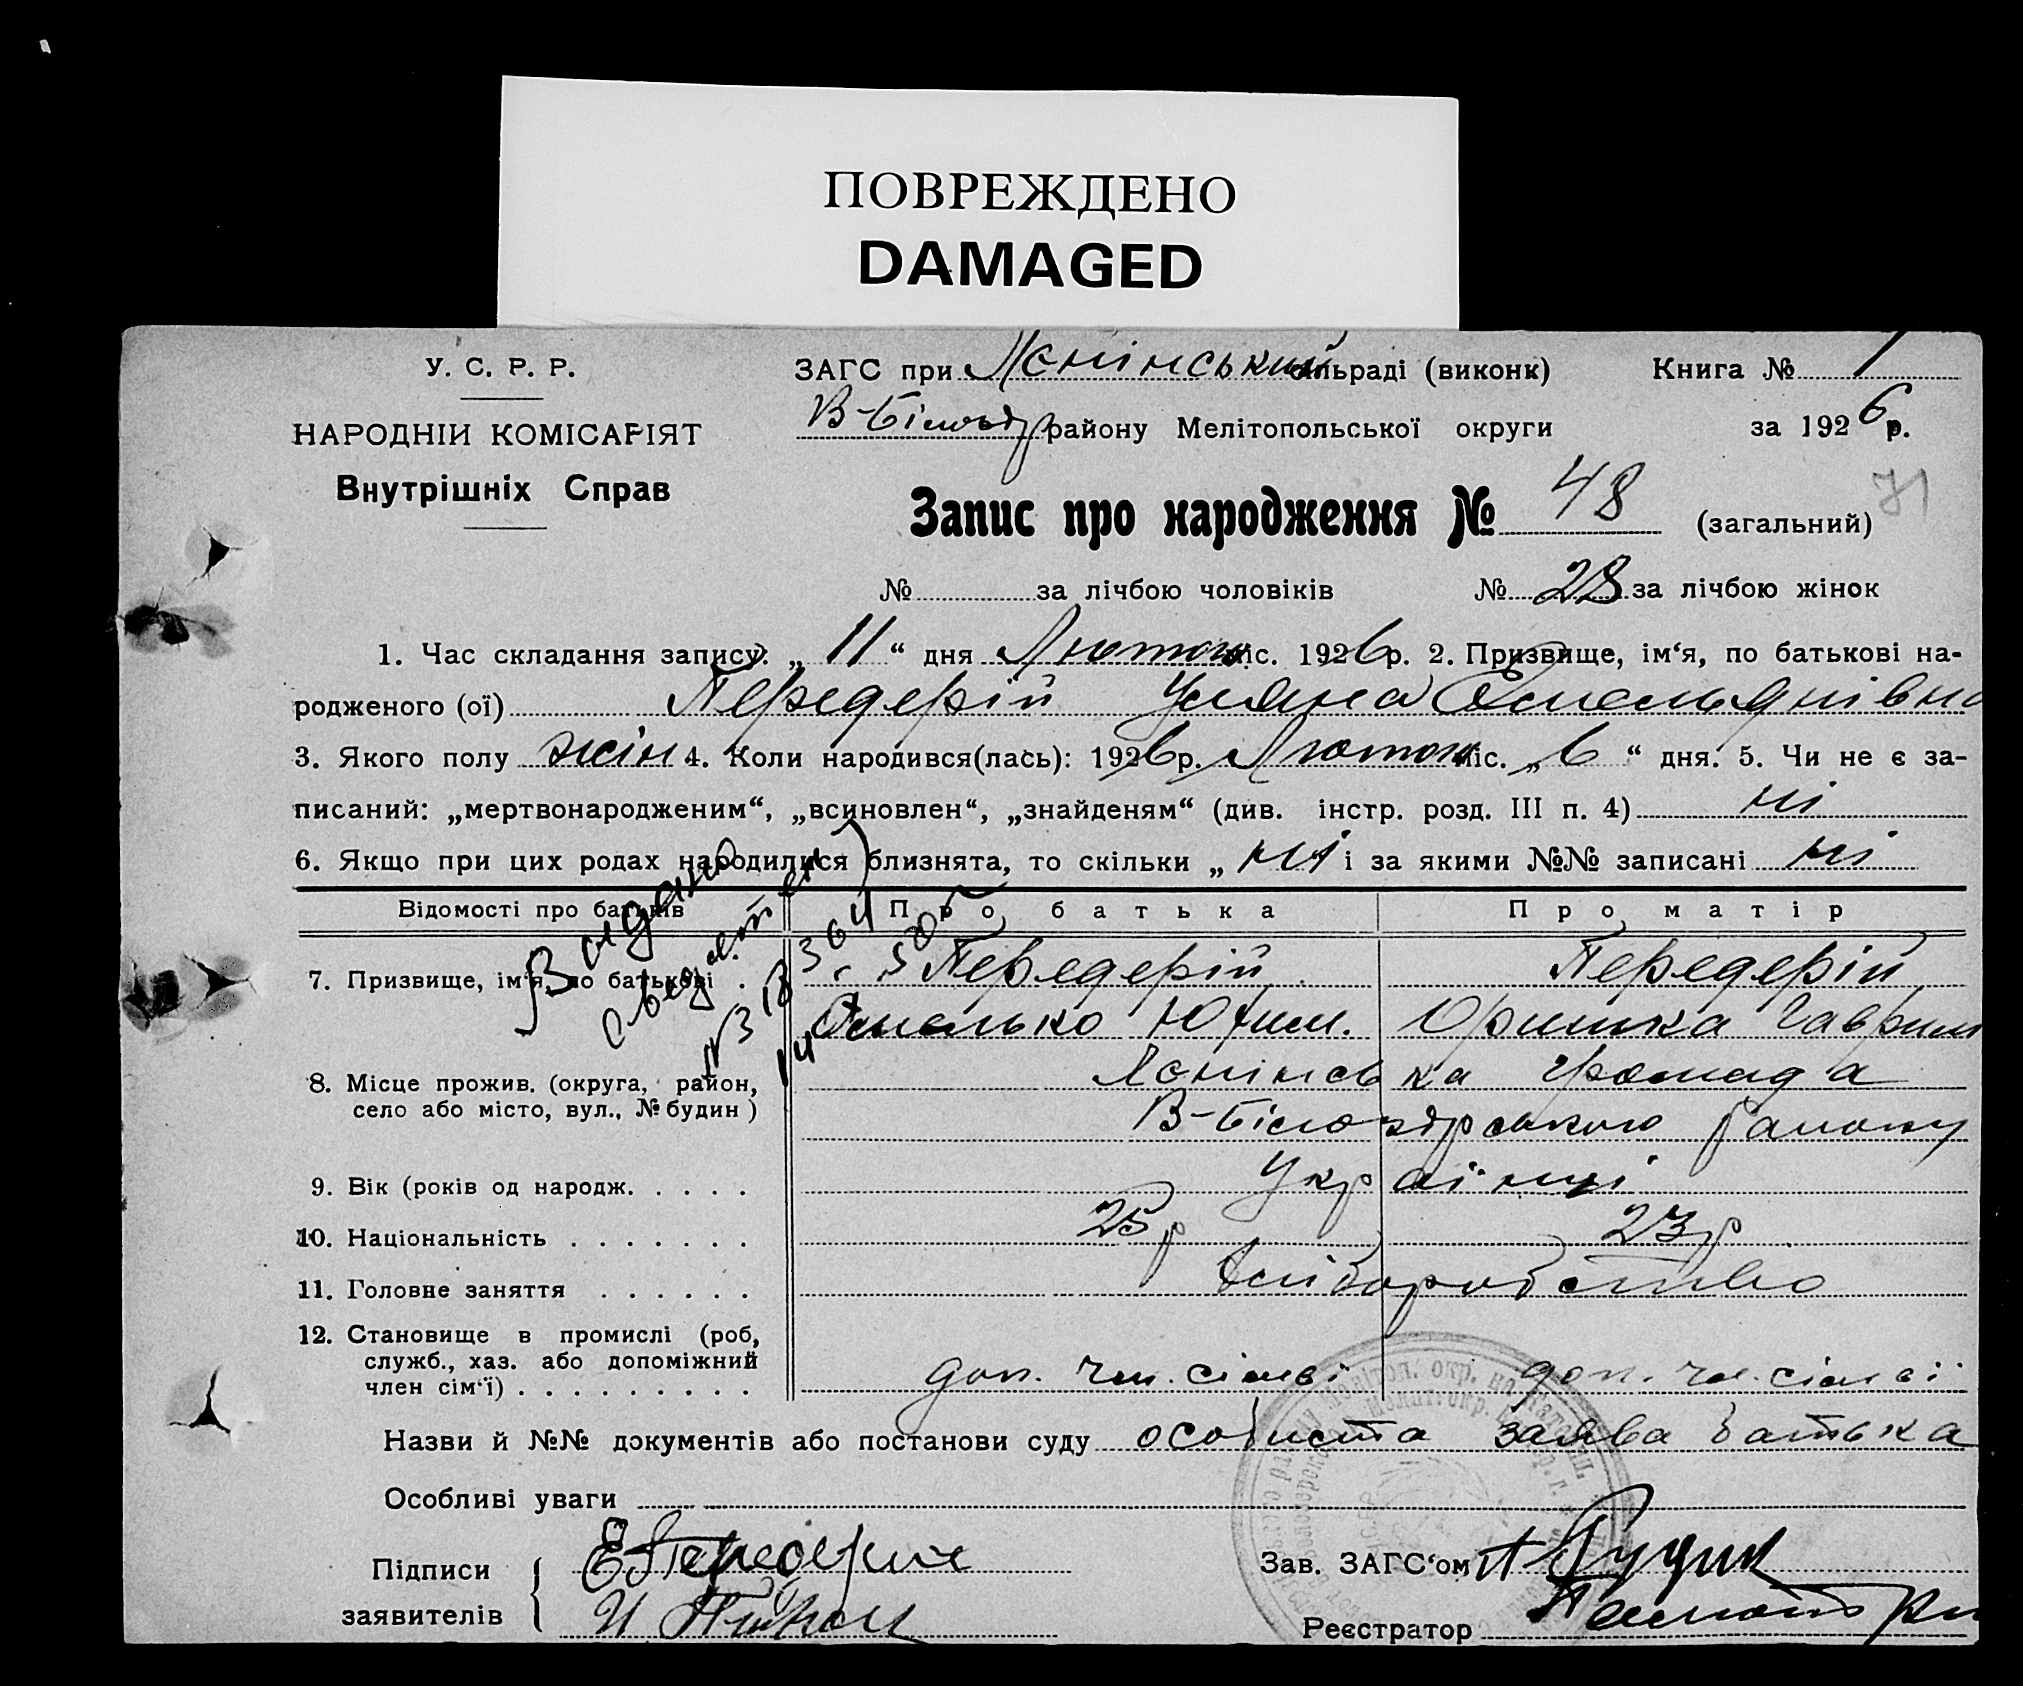 ПОВРЕЖДЕНО
DAMAGED
У. С. Р. Р.
НАРОДНІИ КОМІСАРІЯТ
Внутрішніх Справ
ЗАГС при Ленінський сільраді (виконк)
Книга № 1
В-Білозір району Мелітопольської округи
за 1926 р.
Запис про народження № 48 (загальний)
71
№ за лічбою чоловіків № 28 за лічбою жінок
1. Час складання запису: „ 11 “ дня Лютого міс. 1926 р. 2. Призвище, ім‘я, по батькові на-
родженого (ої) Передерій Уляна Омельянівна
3. Якого полу жін 4. Коли народився(лась): 1926 р. Лютого міс. „ 6 “ дня. 5. Чи не є за-
писаний: „мертвонародженим“, „всиновлен“, „знайденям“ (див. інстр. розд. III п. 4) ні
6. Якщо при цих родах народилися близнята, то скільки „ ні і за якими №№ записані ні
Відомості про батьків Про батька Про матір
Видано
7. Призвище, ім‘я, по батькові . Передерій Передерій
Омелько Юхим. Оришка Гаврил
8. Місце прожив. (округа, район,
село або місто, вул., № будин )
Ленінська громада
В-Білозірського району
9. Вік (років од народж. . . . . Українці
10. Національність . . . . . . . 25 р 23 р
11. Головне заняття . . . . . . хліборобство
12. Становище в промислі (роб,
служб., хаз. або допоміжний
член сім‘ї) . . . . . . . . . доп. чл. сімві доп. чл. сімвї
Назви й №№ документів або постанови суду особиста заява батька
Особливі уваги
Підписи
заявителів
Е Передерий
Зав. ЗАГС‘ом
Рудик
Реєстратор